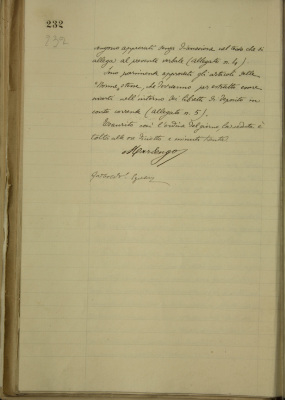 232
232
vengono approvati senza discussione nel testo che si
allega al presente verbale (allegato n. 4).
Sono parimenti approvati gli articoli delle
Norme, che dovranno per estratto essere
inserti nell'interno dei libretti di deposito in
conto corrente (allegato n. 5).
Esaurito così l'ordine del giorno, la seduta è
tolta alle ore diciotto e minuti trenta.